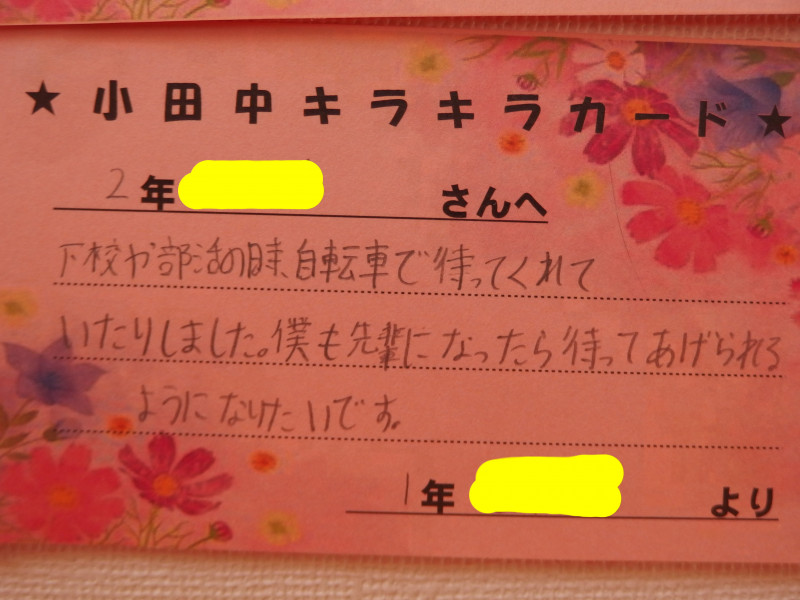 ★小田中キラキラカード★
2年 さんへ
下校や部活の時、自転車で待ってくれて
いたりしました。僕も先輩になったら待ってあげられる
ようになりたいです。
1年 より